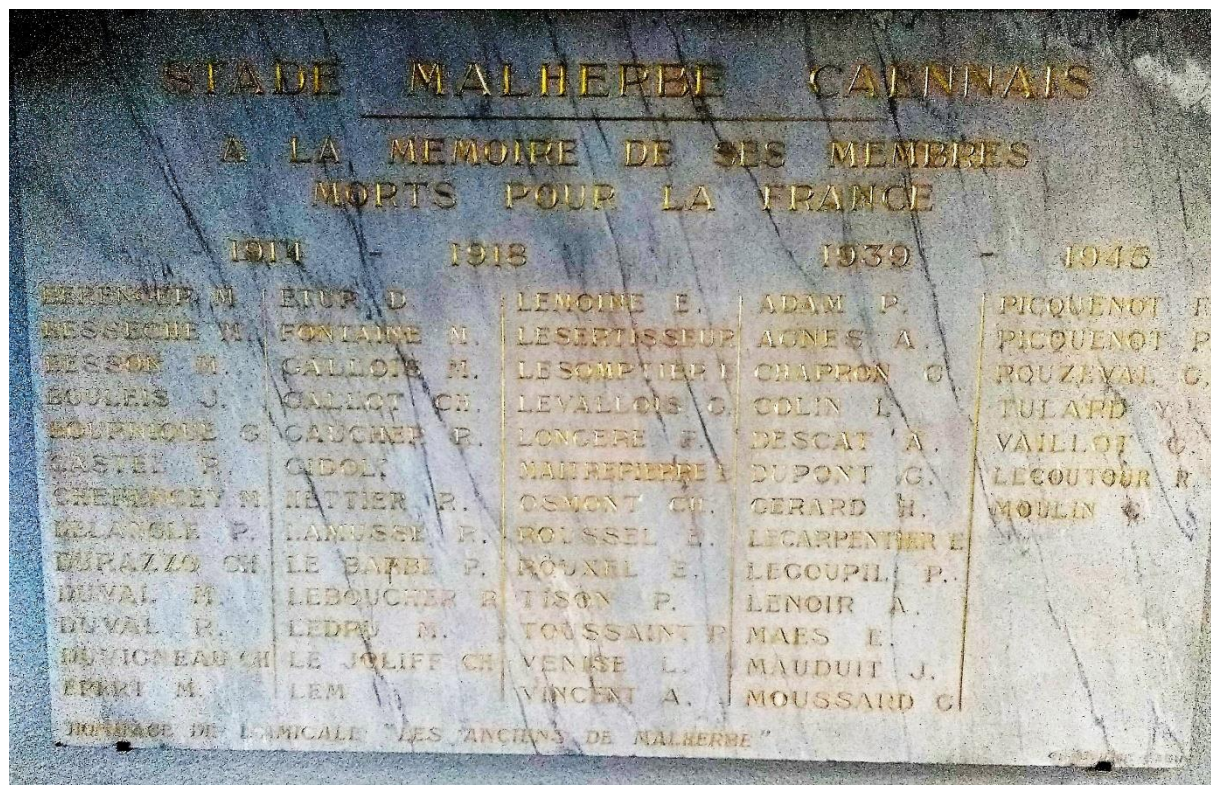 STADE MALHERBE CAENNAIS
A LA MEMOIRE DE SES MEMBRES
MORTS POUR LA FRANCE
1914 - 1918
1939 - 1945
BERENGER M.
BESSECHE M.
BESSON M.
BOULEIS J.
BOURRIQUE G
CASTEL R.
M
DELANGLE P.
DURAZZO CH
DUVAL M.
DUVAL R.
DUVIGNEAU CH
EPERT M.
ETUR D
FONTAINE M.
GALLOIS M.
GALLOT CH.
GAUCHER R.
GIDOL
KETTIER R.
LAMUSSE R.
LE BARBE P.
LEBOUCHER R
LEDRU M.
LE JOLIFF CH
LEM
LEMOINE E.
LESERTISSEUR
LESOMPTIER
LEVALLOIS G
LONCERE F.
MAITREPIERRE
OSMONT CH.
ROUSSEL E.
ROUXEL E.
TISON P.
TOUSSAINT R
VENISE L.
VINCENT A.
ADAM P.
AGNES A.
CHAPRON G
COLIN L
DESCAT A.
DUPONT G.
GERARD H.
LECARPENTIER E
LECOUPIL P.
LENOIR A.
MAES E.
MAUDUIT J.
MOUSSARD G
PICQUENOT F
PICQUENOT P
ROUZEVAL G,
TULARD Y.
VAILLOT G.
LECOUTOUR R
MOULIN
HOMMAGE DE L'AMICALE "LES ANCIENS DE MALHERBE"